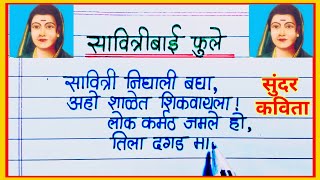 सावित्रीबाई फुले
सावित्री निघाली बघा,
अहो शाळेत शिकवायला!
लोक कर्मठ जमले हो,
तिला दगड मा
सुंदर
कविता